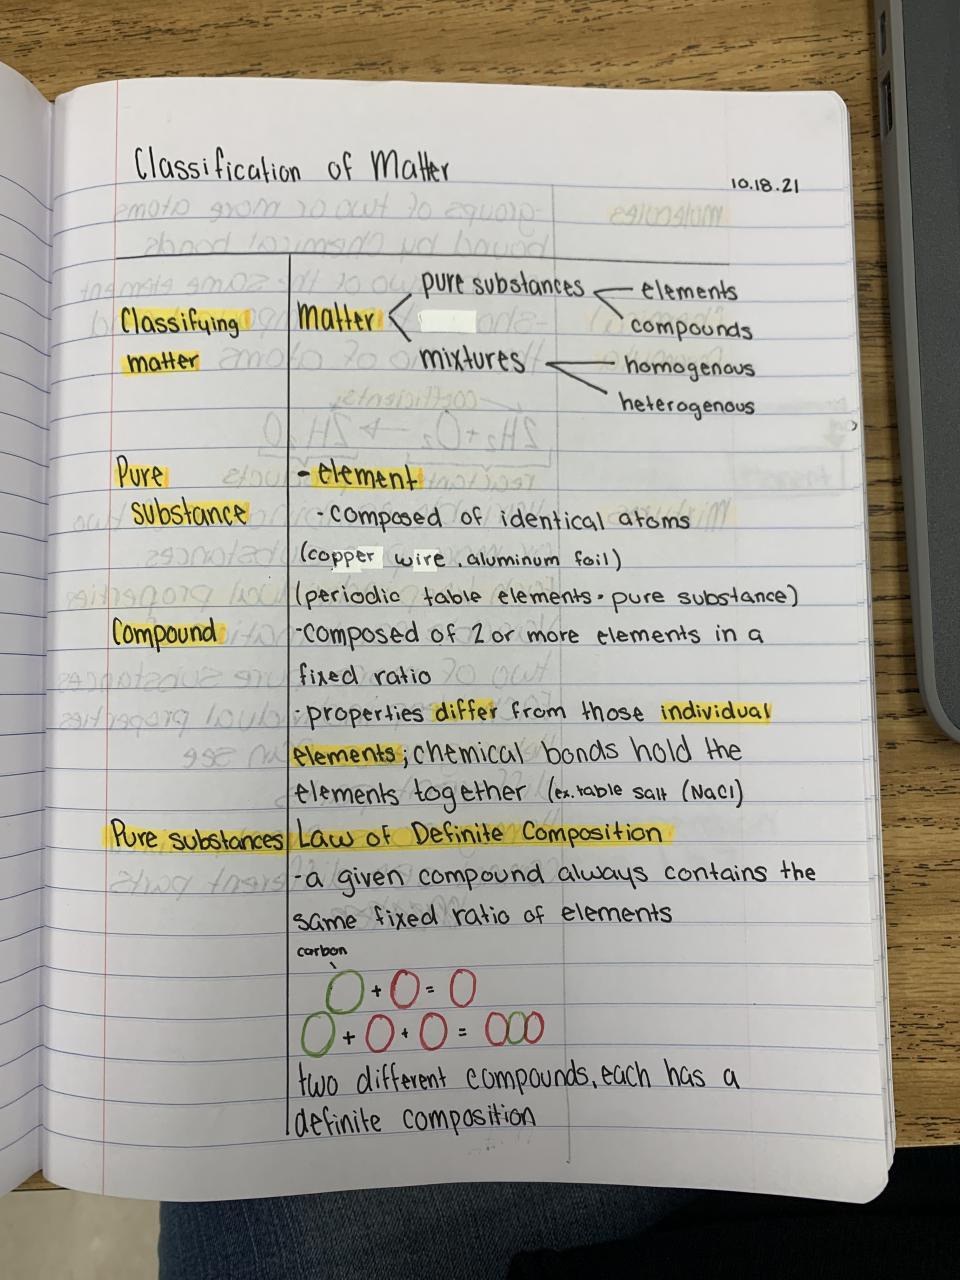 Classification of Matter
10.18.21
Classifying
matter
matter
pure substances
elements
compounds
mixtures
homogenous
heterogenous
Pure
substance
- element
- composed of identical atoms
(copper wire, aluminum foil)
(periodic table elements • pure substance)
Compound
- composed of 2 or more elements in a
fixed ratio
- properties differ from those individual
elements; chemical bonds hold the
elements together (ex. table salt (NaCl)
Pure substances
Law of Definite Composition
- a given compound always contains the
same fixed ratio of elements
carbon
O + O = O
O + O + O = OOO
two different compounds, each has a
definite composition